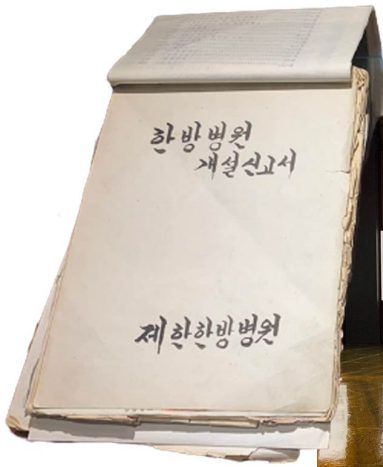 한방병원
개설신고서
제한한방병원